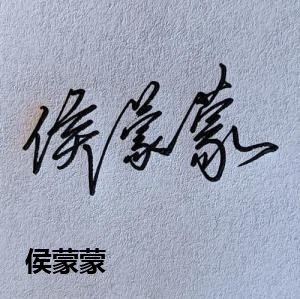 侯蒙蒙
侯蒙蒙